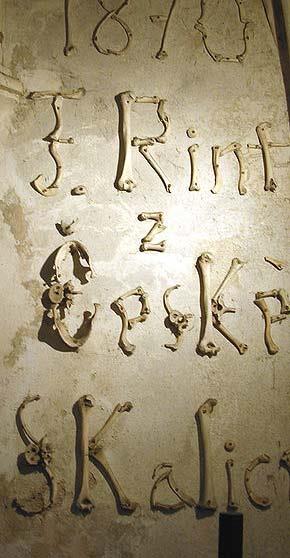 1870
F. Rint
z
České
Skalic